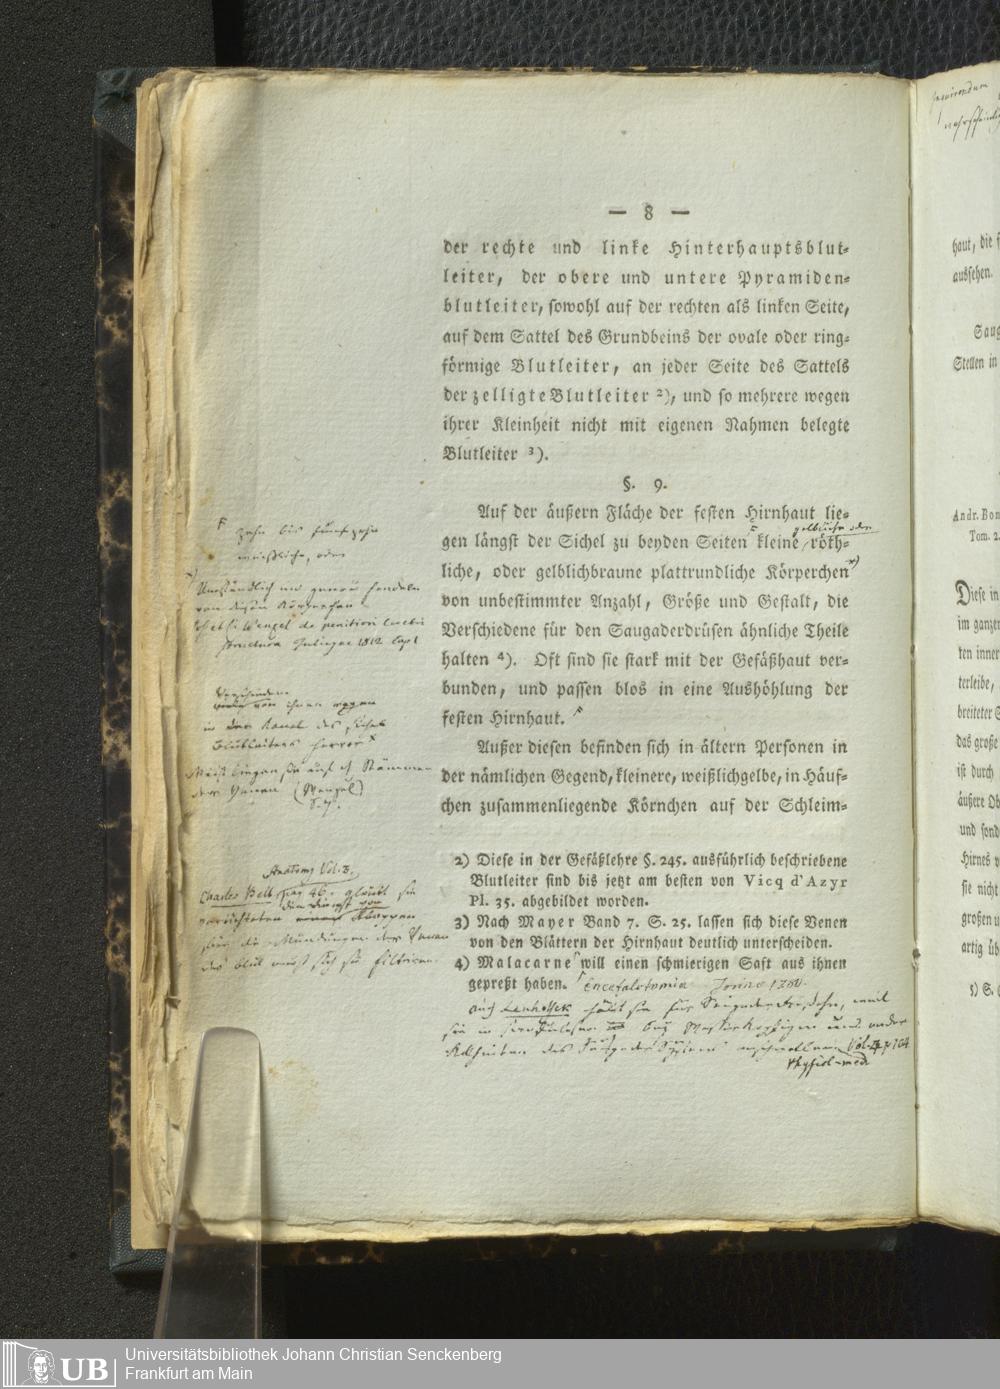 — 8 —
der rechte und linke Hinterhauptsblut-
leiter, der obere und untere Pyramiden-
blutleiter, sowohl auf der rechten als linken Seite,
auf dem Sattel des Grundbeins der ovale oder ring-
förmige Blutleiter, an jeder Seite des Sattels
der zelligte Blutleiter ²), und so mehrere wegen
ihrer Kleinheit nicht mit eigenen Nahmen belegte
Blutleiter ³).
§. 9.
Auf der äußern Fläche der festen Hirnhaut lie-
gelbliche oder
gen längst der Sichel zu beyden Seiten kleine röth-
liche, oder gelblichbraune plattrundliche Körperchen
von unbestimmter Anzahl, Größe und Gestalt, die
Verschiedene für den Saugaderdrüsen ähnliche Theile
halten ⁴). Oft sind sie stark mit der Gefäßhaut ver-
bunden, und passen blos in eine Aushöhlung der
festen Hirnhaut.
Außer diesen befinden sich in ältern Personen in
der nämlichen Gegend, kleinere, weißlichgelbe, in Häuf-
chen zusammenliegende Körnchen auf der Schleim-
2) Diese in der Gefäßlehre §. 245. ausführlich beschriebene
Blutleiter sind bis jetzt am besten von Vicq d'Azyr
Pl. 35. abgebildet worden.
3) Nach Mayer Band 7. S. 25. lassen sich diese Venen
von den Blättern der Hirnhaut deutlich unterscheiden.
4) Malacarne will einen schmierigen Saft aus ihnen
gepreßt haben. Encefalotomia Torino 1780.
auch Lenhossek hält sie für
Vol. p 104
Physiol. med.
zehn bis fünfzehn
weißliche, oder
Umständlich und genau handeln
von diesen Körperchen
Wengel de penitiori cerebri
structura Tubingae 1812 Cap 1
Verschiedene
von ihnen ragen
in den Kanal des Sichel
Blutleiters hervor
Meist liegen sie auf d Stämmen
der Venen (Wengel)
S. 7.
Anatomy Vol. 3.
Charles Bell pag 46. glaubt sie
verrichteten den Dienst von Klappen
für die Mündungen der Venen
das Blut muß sich so filtriren.
haut, die
aussehen.
Saug
Stellen in
Andr. Bon
Tom. 2.
Diese in
im ganzen
ten inner
terleibe,
breiteter
das große
ist durch
äußere Ob
und sond
Hirnes
sie nicht
großen
artig üb
5) S.
Universitätsbibliothek Johann Christian Senckenberg
UB
Frankfurt am Main